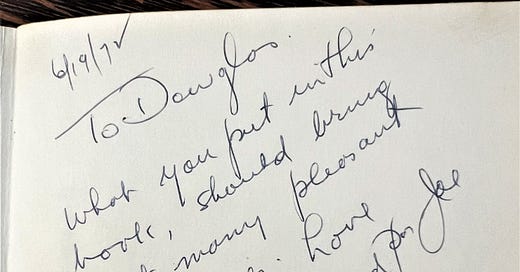 6/19/72
To Douglas.
What you put in this
book, should bring
many pleasant
Love
Joe